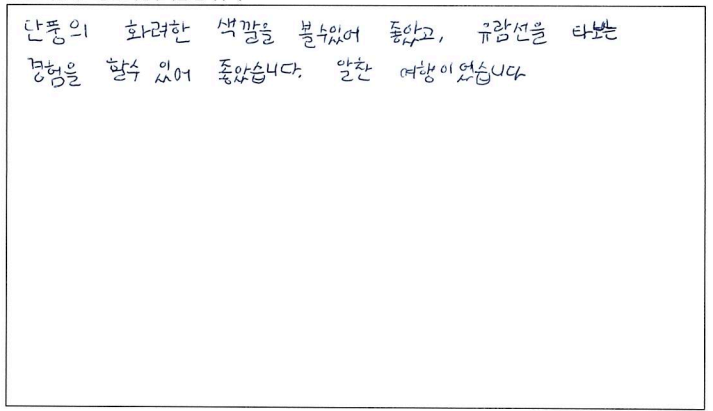 단풍의 화려한 색깔을 볼수있어 좋았고, 유람선을 타보는
경험을 할수 있어 좋았습니다. 알찬 여행이었습니다